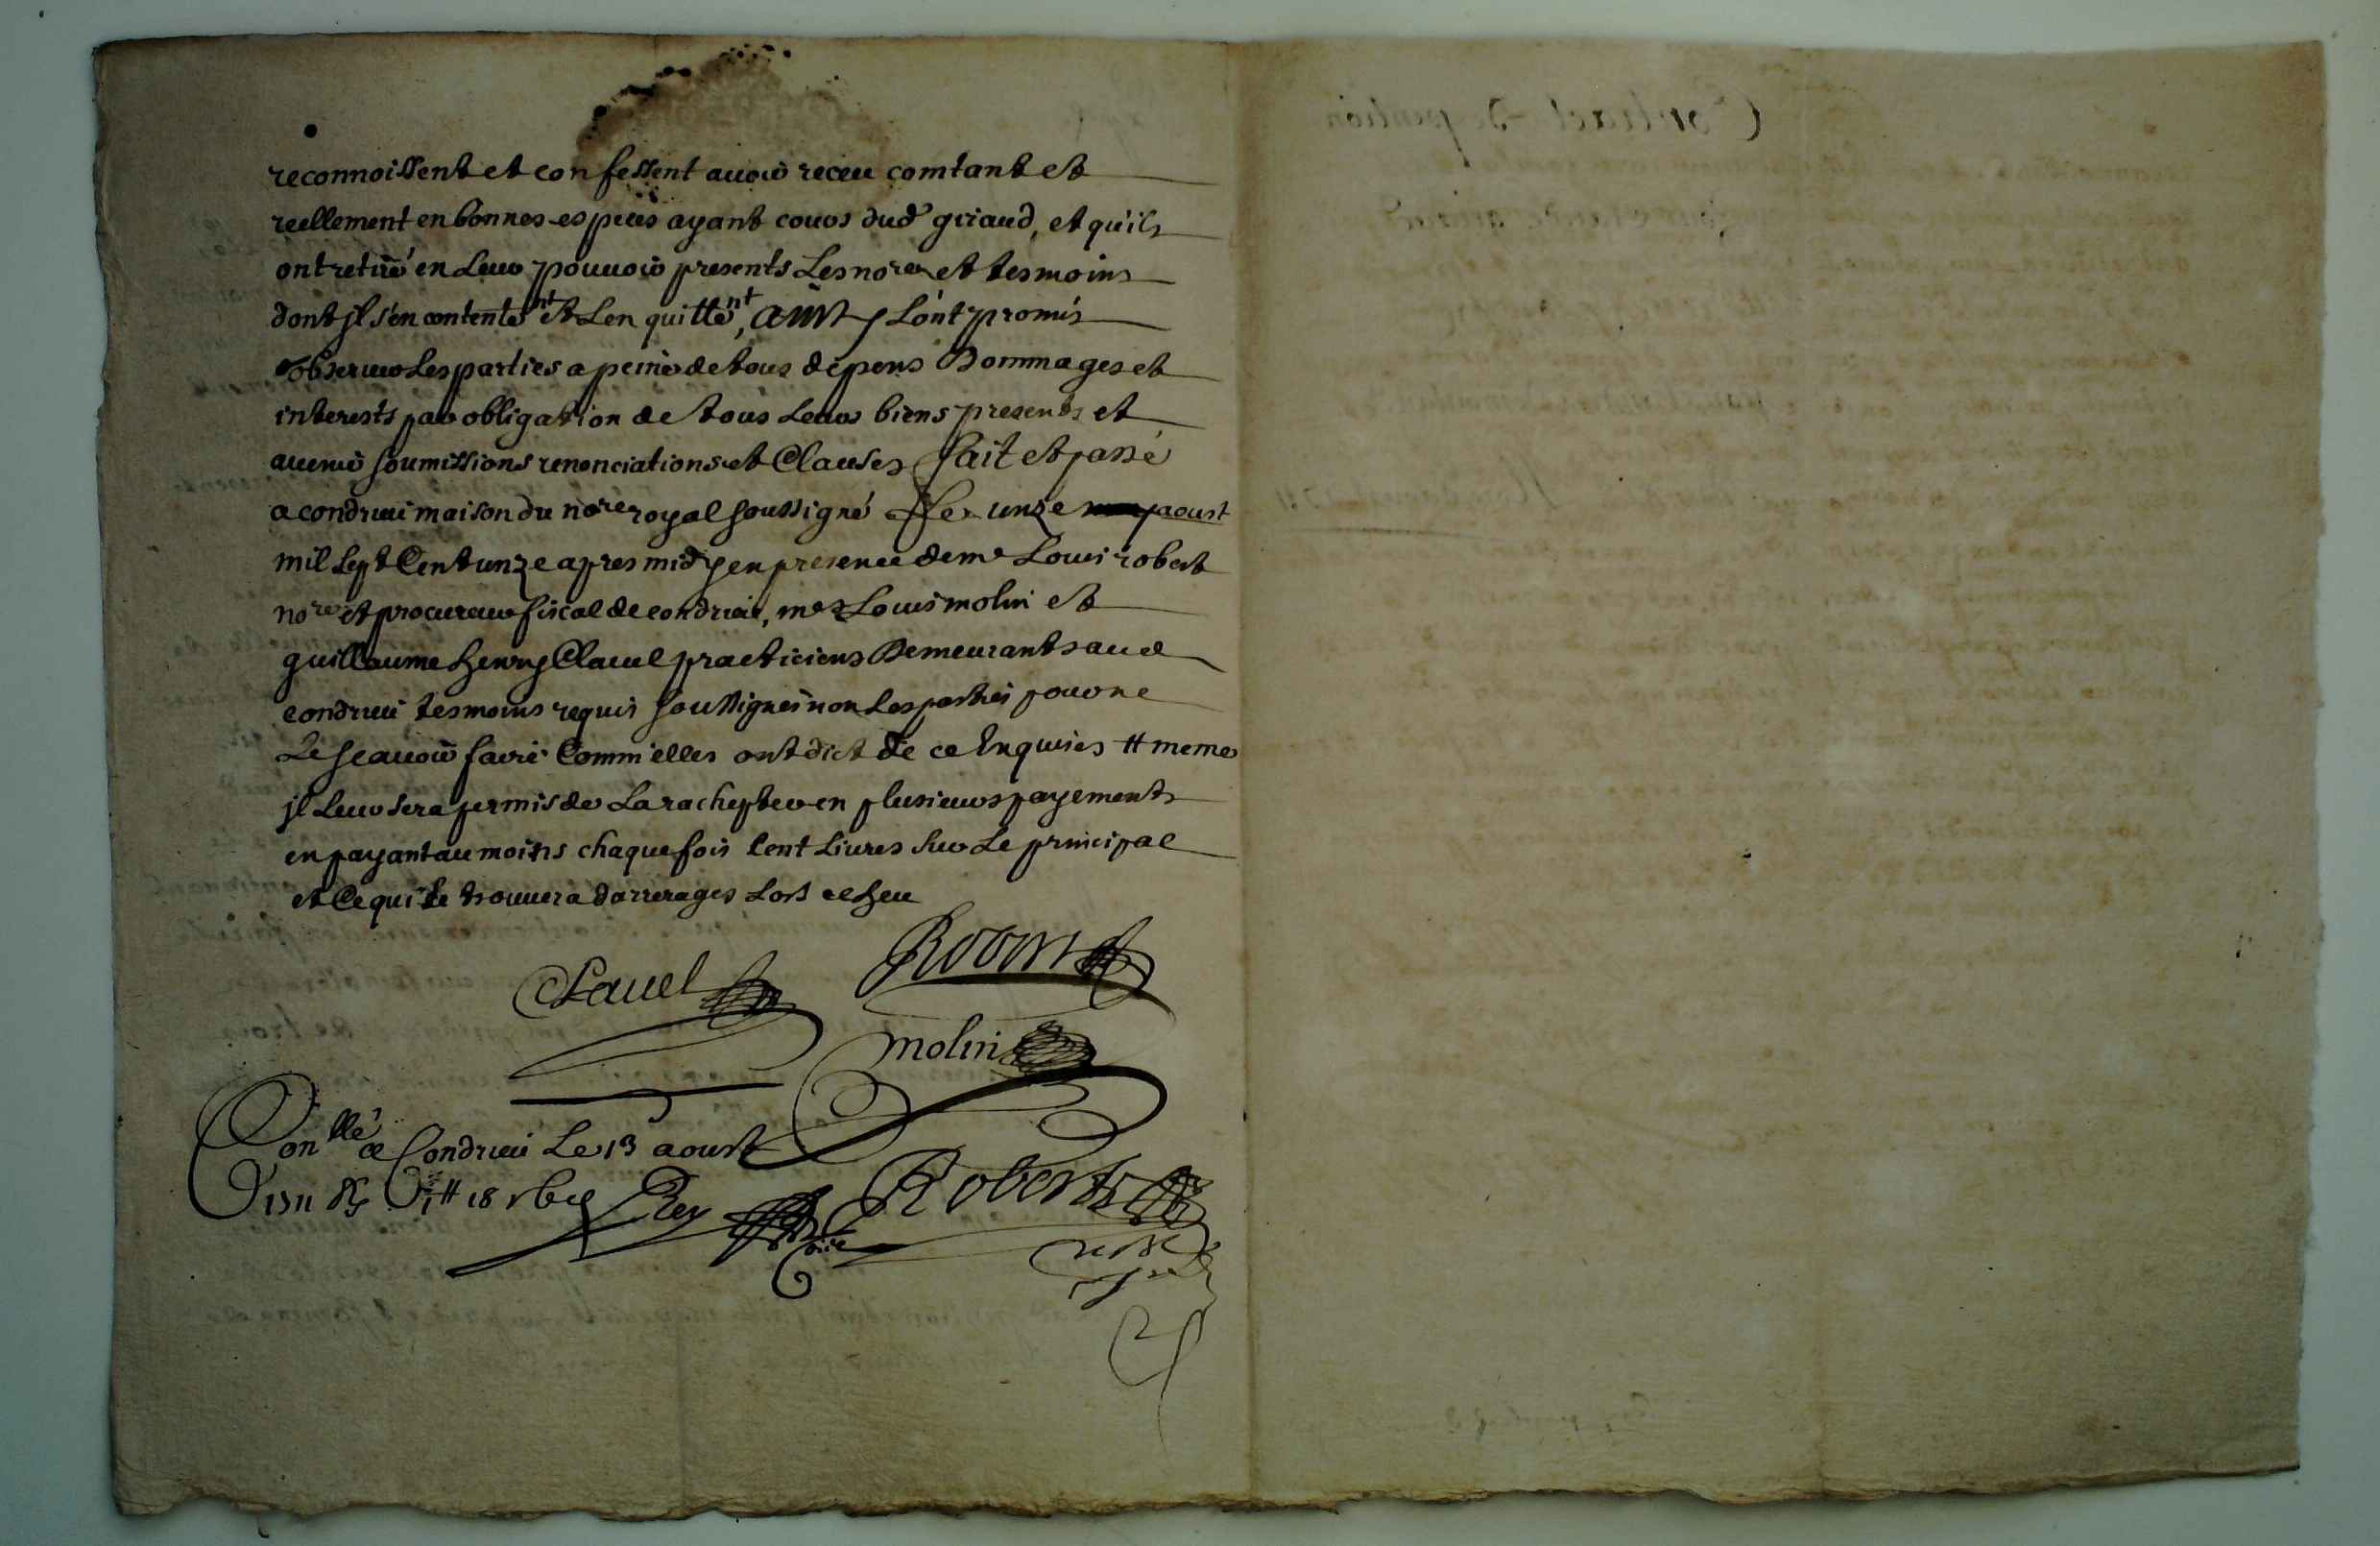 reconnoissent et confessent auoir receu comtant et
reellement en bonnes especes ayant cours dud giraud, et quils
ont retiré en Leur pouuoir presents Les nores et tesmoins
dont jl s'en contentent et Len quittent, ainsy L'ont promis
obseruer Les parties a peine de tous dépens Dommages et
interests par obligation de tous Leurs biens presents et
auenir soumissions renonciations et Clauses fait et passé
a condrieu maison du nore royal soussigné Le unze aoust
mil sept Cent unze apres midy en presence de me Louis robert
nore et procureur fiscal de condrieu, mes Louis molin et
guillaume henry Clauel practiciens Demeurants aud
condrieu tesmoins requis soussignés non Les parties pour ne
Le scauoir faire Comm'elles ont dict de ce Enquises # meme
jl Leur sera permis de La rachepter en plusieurs payements
en payant au moins chaque fois Cent Liures sur Le principal
et Ce qui se trouuera darrerages Lors escheu
Clauel Robert
molin
Conllé a Condrieu Le 13 aoust
1711 Rey Robert
Contract de pention